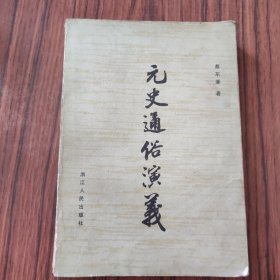 蔡东藩 著
元史通俗演義
浙江人民出版社